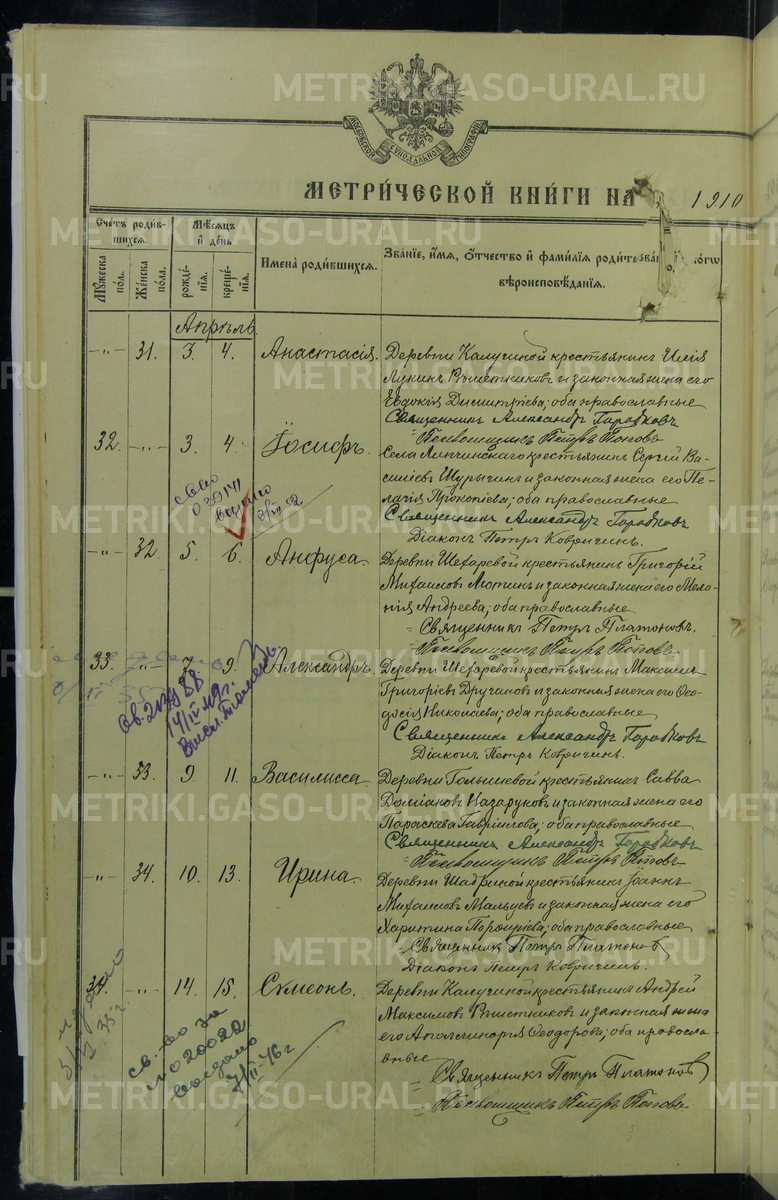 МОСКОВСКОЙ СѴНОДАЛЬНОЙ ТИПОГРАФІИ
МЕТРИ́ЧЕСКОЙ КНИ́ГИ НА 1910
Сче́тъ роди́в-
шихся.
Мѣ́сяцъ
и҆ де́нь
Мꙋ́жеска
по́ла.
Же́нска
по́ла.
рожде́-
нїѧ.
креще́-
нїѧ.
Имена̀ роди́вшихся.
Зва́нїе, и҆́мя, ѻ҆́тчество и҆ фами́лїя роди́те
вѣроисповѣ́данїя.
Апрѣль.
-„- 31. 3. 4. Анастасія.
Деревни Калугиной крестьянинъ Илія
Лукинъ Рѣшетниковъ и законная жена его
Евдокія Димитріева; оба православные
Священникъ Александръ Городковъ
Псаломщикъ Петръ Поповъ
32. -„- 3. 4. Іосифъ.
Села Липчинскаго крестьянинъ Сергѣй Ва-
силіевъ Шурыгинъ и законная жена его Пе-
лагія Прокопіева; оба православные
Священникъ Александръ Городковъ
Діаконъ Петръ Ковригинъ.
-„- 32. 5. 6. Анфуса.
Григорій
Михаиловъ Лютинъ и законная жена его Мела-
нія Андреева; оба православные
Священникъ Петръ Платоновъ.
Псаломщикъ Петръ Поповъ
33. -„- 7. 9. Александръ.
крестьянинъ Максимъ
Григоріевъ Другановъ и законная жена его Ѳео-
досія Николаева; оба православные
Священникъ Александръ Городковъ
Діаконъ Петръ Ковригинъ.
-„- 33. 9. 11. Василисса.
крестьянинъ Савва
Даміановъ Назаруковъ и законная жена его
Параскева Гавріилова; оба православные
Священникъ Александръ Городковъ
Псаломщикъ Петръ Поповъ
-„- 34. 10. 13. Ирина.
Деревни Шадриной крестьянинъ Іоаннъ
Михаиловъ Мальцевъ и законная жена его
Харитина Порфиріева; оба православные
Священник Петръ Платонов
Діаконъ Петръ Ковригинъ.
34. -„- 14. 15. Сѵмеонъ.
Деревни Калугиной крестьянинъ Андрей
Максимовъ Рѣшетниковъ и законная жена
его Аполлинарія Ѳеодорова; оба правосла-
вные
Священникъ Петръ Платонов
Псаломщикъ Петръ Поповъ.
св-во за
но 20022
выдано
7/II-46 г
METRIKI.GASO-URAL.RU